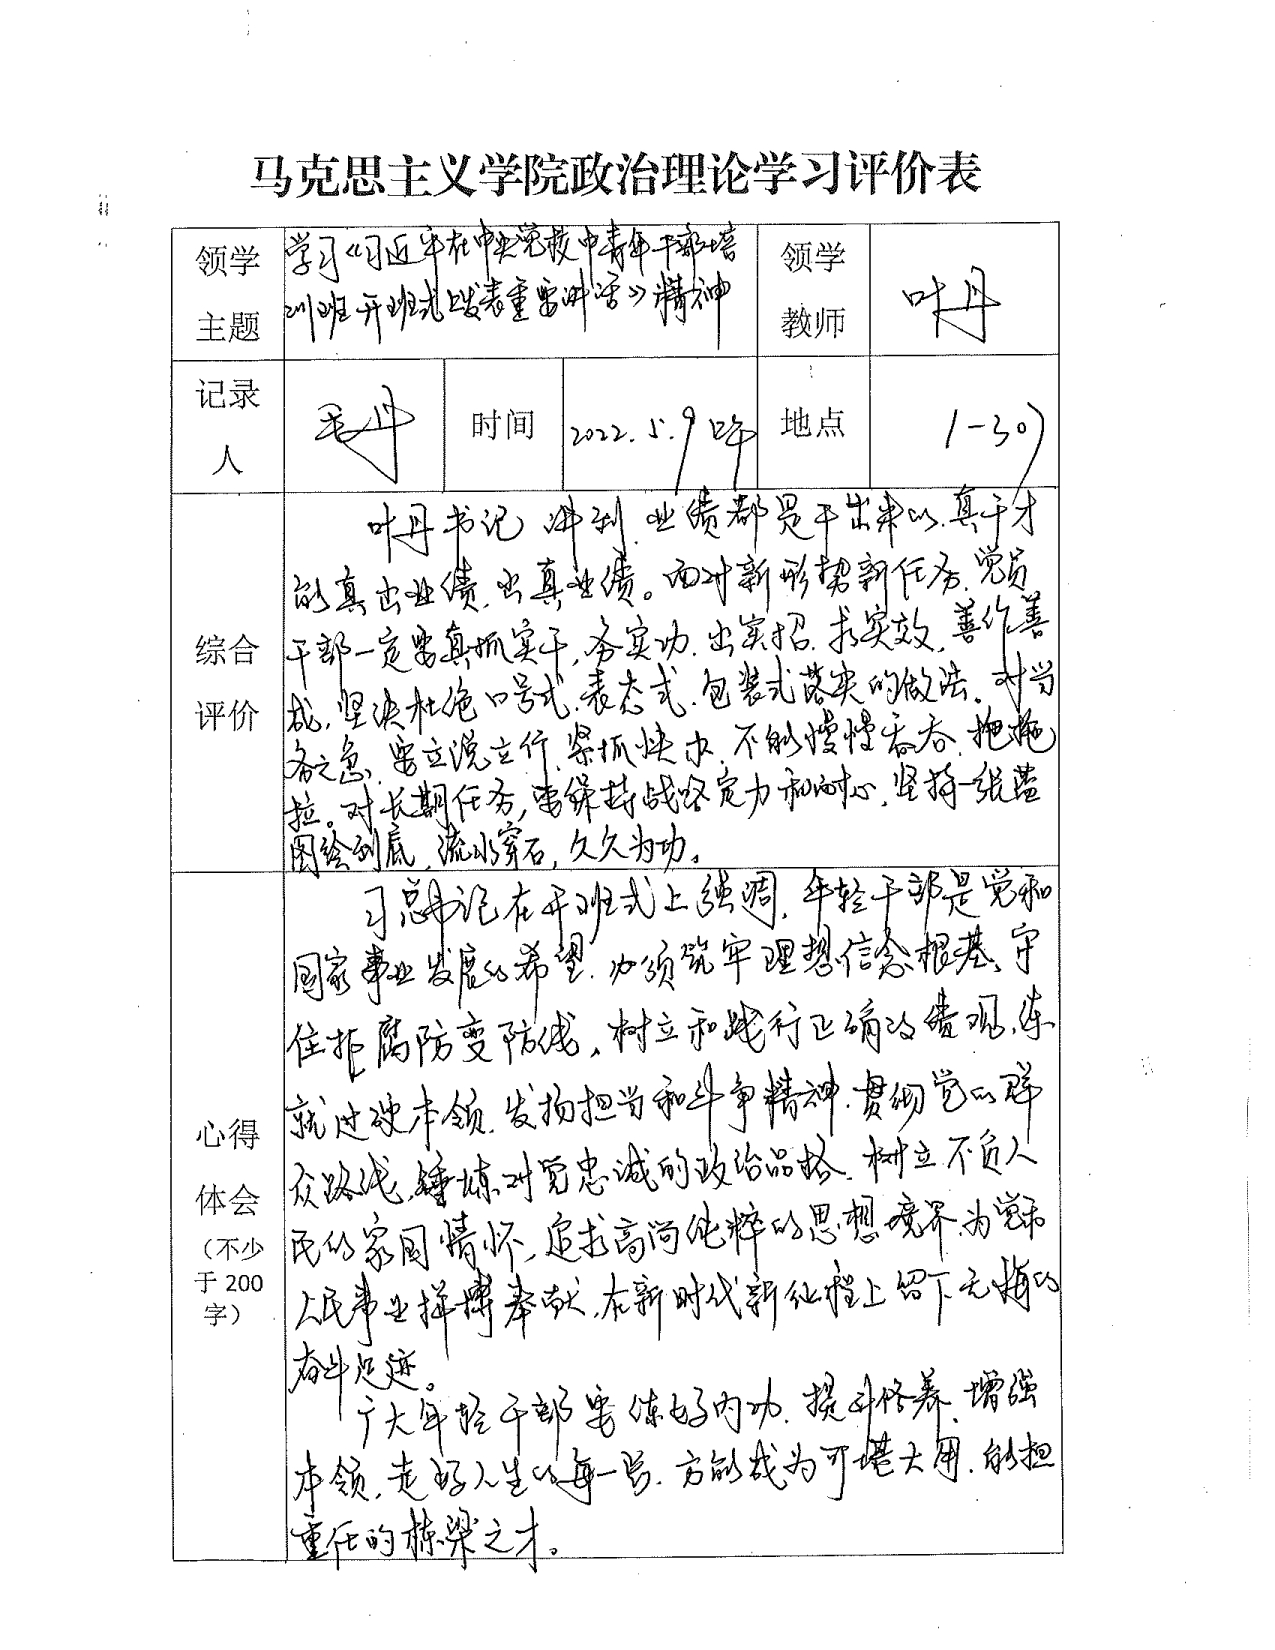 马克思主义学院政治理论学习评价表
领学
主题
学习《习近平在中央党校中青年干部培
训班开班式上发表重要讲话》精神
领学
教师
叶丹
记录
人
毛丹
时间
2022.5.9下午
地点
1-307
综合
评价
叶丹书记讲到,业绩都是干出来的,真干才
能真出业绩,出真业绩。面对新形势新任务,党员
干部一定要真抓实干,务实功、出实招、求实效,善作善
成,坚决杜绝口号式、表态式、包装式落实的做法。对当
务之急,要立说立行、紧抓快办,不能慢慢吞吞、拖拖
拉拉。对长期任务,要保持战略定力和耐心,坚持一张蓝
图绘到底,滴水穿石,久久为功。
心得
体会
(不少
于200
字)
习总书记在开班式上强调,年轻干部是党和
国家事业发展的希望,必须筑牢理想信念根基,守
住拒腐防变防线,树立和践行正确政绩观,练
就过硬本领,发扬担当和斗争精神,贯彻党的群
众路线,锤炼对党忠诚的政治品格,树立不负人
民的家国情怀,追求高尚纯粹的思想境界,为党和
人民事业拼搏奉献,在新时代新征程上留下无悔的
奋斗足迹。
广大年轻干部要练好内功、提升修养、增强
本领,走好人生的每一步,方能成为可堪大用、能担
重任的栋梁之才。